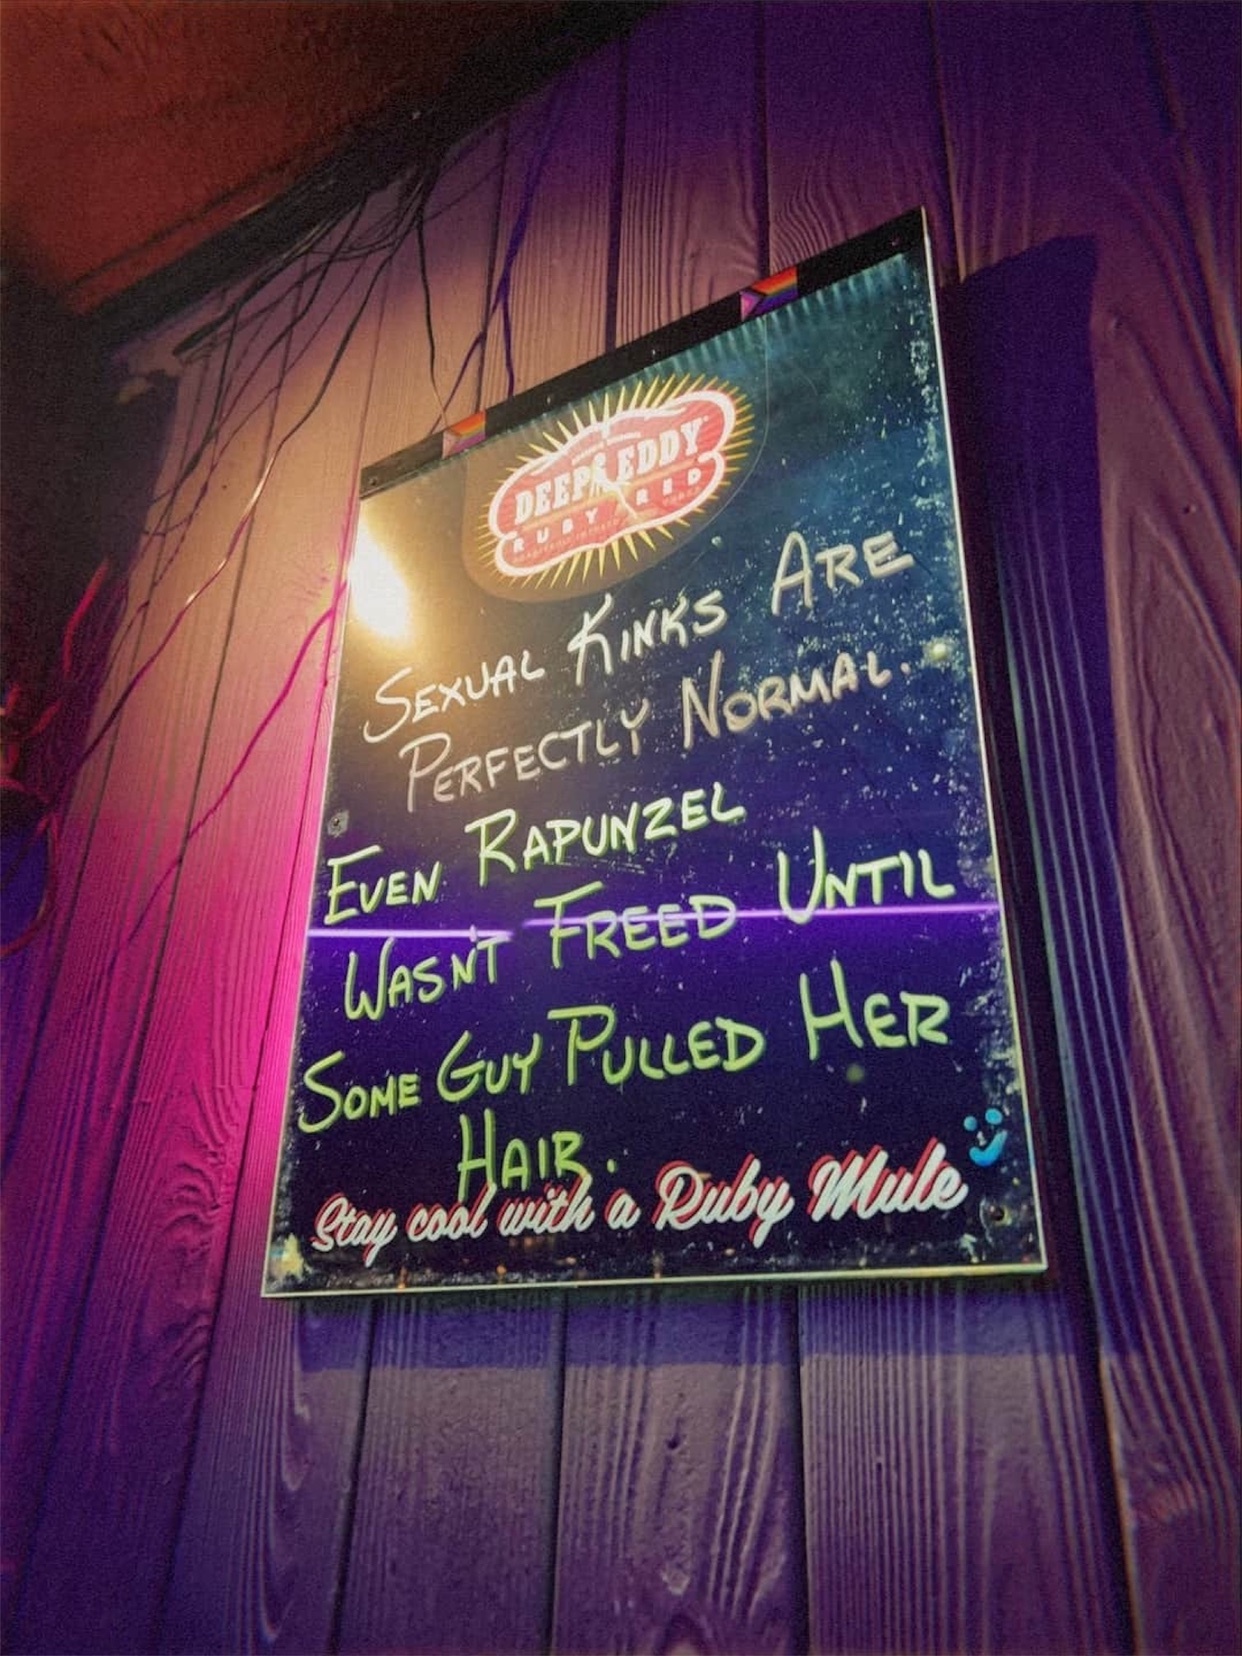 DEEP EDDY
RUBY RED
SEXUAL KINKS ARE
PERFECTLY NORMAL.
EVEN RAPUNZEL
WASN'T FREED UNTIL
SOME GUY PULLED HER
HAIR.
Stay cool with a Ruby Mule